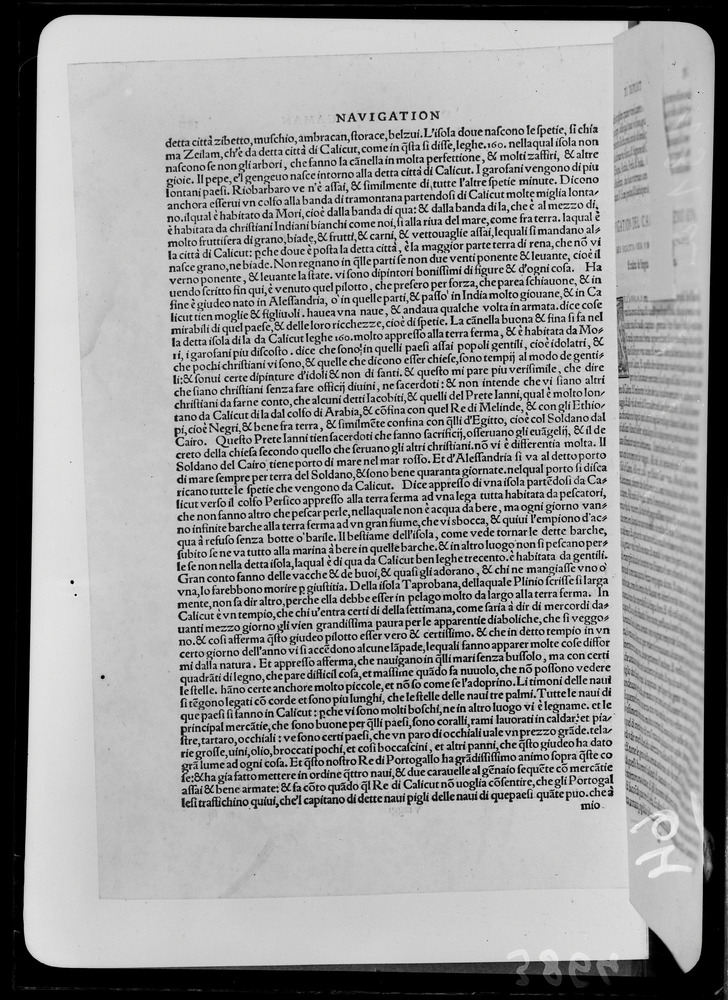 NAVIGATION
detta città zibetto, muſchio, ambracan, ſtorace, belzui. L'iſola doue naſcono le ſpetie, ſi chia
ma Zeilam, ch'è da detta città di Calicut, come in q̃ſta ſi diſſe, leghe .160. nellaqual iſola non
naſcono ſe non gli arbori, che fanno la cãnella in molta perfettione, & molti zaffiri, & altre
gioie. Il pepe, e'l gengeuo naſce intorno alla detta città di Calicut. I garofani vengono di piu
lontani paeſi. Riobarbaro ve n'è aſſai, & ſimilmente di tutte l'altre ſpetie minute. Dicono
anchora eſſerui vn colfo alla banda di tramontana partendoſi di Calicut molte miglia lonta-
no. ilqual è habitato da Mori, cioè dalla banda di qua: & dalla banda di la, che è al mezzo di,
è habitata da chriſtiani Indiani bianchi come noi, ſi alla riua del mare, come fra terra. laqual è
molto fruttifera di grano, biade, & frutti, & carni, & vettouaglie aſſai, lequali ſi mandano al-
la città di Calicut: ꝑche doue è poſta la detta città, è la maggior parte terra di rena, che nõ vi
naſce grano, ne biade. Non regnano in q̃lle parti ſe non due venti ponente & leuante, cioè il
verno ponente, & leuante la ſtate. vi ſono dipintori boniſſimi di figure & d'ogni coſa. Ha
uendo ſcritto fin qui, è venuto quel pilotto, che preſero per forza, che parea ſchiauone, & in
fine è giudeo nato in Aleſſandria, o in quelle parti, & paſſo in India molto giouane, & in Ca
licut tien moglie & figliuoli. hauea vna naue, & andaua qualche volta in armata. dice coſe
mirabili di quel paeſe, & delle loro ricchezze, cioè di ſpetie. La cãnella buona & fina ſi fa nel
la detta iſola di la da Calicut leghe 160. molto appreſſo alla terra ferma, & è habitata da Mo-
ri, i garofani piu diſcoſto. dice che ſono in quelle paeſi aſſai popoli gentili, cioè idolatri, &
che pochi chriſtiani vi ſono, & quelle che dicono eſſer chieſe, ſono tempij al modo de genti-
li: & ſonui certe dipinture d'idoli & non di ſanti. & queſto mi pare piu veriſimile, che dire
che ſiano chriſtiani ſenza fare officij diuini, ne ſacerdoti: & non intende che vi ſiano altri
chriſtiani da farne conto, che alcuni detti Iacobiti, & quelli del Prete Ianni, qual è molto lon-
tano da Calicut di la dal colfo di Arabia, & cõfina con quel Re di Melinde, & con gli Ethio-
pi, cioè Negri, & bene fra terra, & ſimilmẽte confina con q̃lli d'Egitto, cioè col Soldano dal
Cairo. Queſto Prete Ianni tien ſacerdoti che fanno ſacrificij, oſſeruano gli euãgelij, & il de
creto della chieſa ſecondo quello che ſeruano gli altri chriſtiani. nõ vi è differentia molta. Il
Soldano del Cairo tiene porto di mare nel mar roſſo. Et d'Aleſſandria ſi va al detto porto
di mare ſempre per terra del Soldano, & ſono bene quaranta giornate. nelqual porto ſi diſca
ricano tutte le ſpetie che vengono da Calicut. Dice appreſſo di vna iſola partẽdoſi da Ca-
licut verſo il colfo Perſico appreſſo alla terra ferma ad vna lega tutta habitata da peſcatori,
che non fanno altro che peſcar perle, nellaquale non è acqua da bere, ma ogni giorno van-
no infinite barche alla terra ferma ad vn gran fiume, che vi sbocca, & quiui l'empiono d'ac-
qua à refuſo ſenza botte o barile. Il beſtiame dell'iſola, come vede tornar le dette barche,
ſubito ſe ne va tutto alla marina à bere in quelle barche. & in altro luogo non ſi peſcano per-
le ſe non nella detta iſola, laqual è di qua da Calicut ben leghe trecento. è habitata da gentili.
Gran conto fanno delle vacche & de buoi, & quaſi gli adorano, & chi ne mangiaſſe vno o
vna, lo farebbono morire ꝑ giuſtitia. Della iſola Taprobana, dellaquale Plinio ſcriſſe ſi larga
mente, non ſa dir altro, perche ella debbe eſſer in pelago molto da largo alla terra ferma. In
Calicut è vn tempio, che chi v'entra certi di della ſettimana, come ſaria à dir di mercordi da-
uanti mezzo giorno gli vien grandiſſima paura per le apparentie diaboliche, che ſi veggo-
no. & coſi afferma q̃ſto giudeo pilotto eſſer vero & certiſſimo. & che in detto tempio in vn
certo giorno dell'anno vi ſi accẽdono alcune lãpade, lequali fanno apparer molte coſe diffor
mi dalla natura. Et appreſſo afferma, che nauigano in q̃lli mari ſenza buſſolo, ma con certi
quadrãti di legno, che pare difficil coſa, et maſſime quãdo fa nuuolo, che nõ poſſono vedere
le ſtelle. hãno certe anchore molto piccole, et nõ ſo come ſe l'adoprino. Li timoni delle naui
ſi tẽgono legati cõ corde et ſono piu lunghi, che le ſtelle delle naui tre palmi. Tutte le naui di
que paeſi ſi fanno in Calicut: ꝑche vi ſono molti boſchi, ne in altro luogo vi è legname. et le
principal mercãtie, che ſono buone per q̃lli paeſi, ſono coralli, rami lauorati in caldar, et pia-
ſtre, tartaro, occhiali: ve ſono certi paeſi, che vn paro di occhiali uale vn prezzo grãde. tela-
rie groſſe, uini, olio, broccati pochi, et coſi boccaſcini, et altri panni, che q̃ſto giudeo ha dato
grã lume ad ogni coſa. Et q̃ſto noſtro Re di Portogallo ha grãdiſſiſſimo animo ſopra q̃ſte co
ſe: & ha gia fatto mettere in ordine q̃ttro naui, & due carauelle al gẽnaio ſequẽte cõ mercãtie
aſſai & bene armate: & fa cõto quãdo q̃l Re di Calicut nõ uoglia cõſentire, che gli Portogal
leſi traffichino quiui, che'l capitano di dette naui pigli delle naui di que paeſi quãte puo. che à
mio